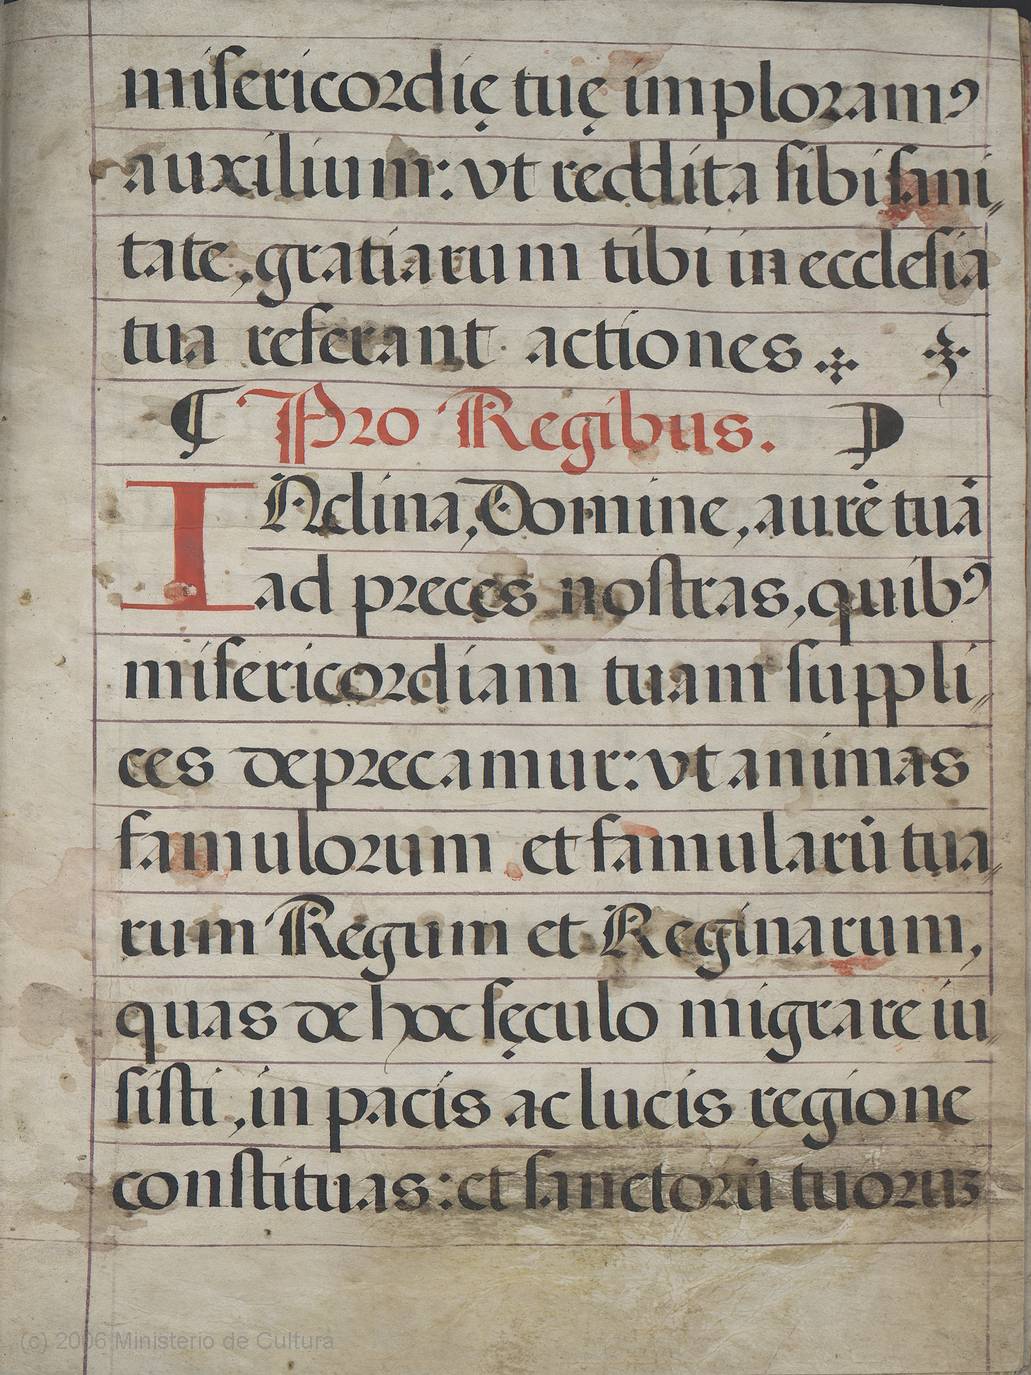 miſericordię tuę imploramꝰ
auxilium: vt reddita ſibi ſani„
tate, gratiarum tibi in eccleſia
tua referant actiones.
¶ Pro Regibus.
INclina, Domine, aurē tuā
ad preces noſtras, quibꝰ
miſericordiam tuam ſuppli„
ces deprecamur: vt animas
famulorum et famularū tua„
rum Regum et Reginarum,
quas de hoc ſęculo migrare iu„
ſiſti, in pacis ac lucis regione
conſtituas: et ſanctorū tuoruꝫ
(c) 2006 Ministerio de Cultura